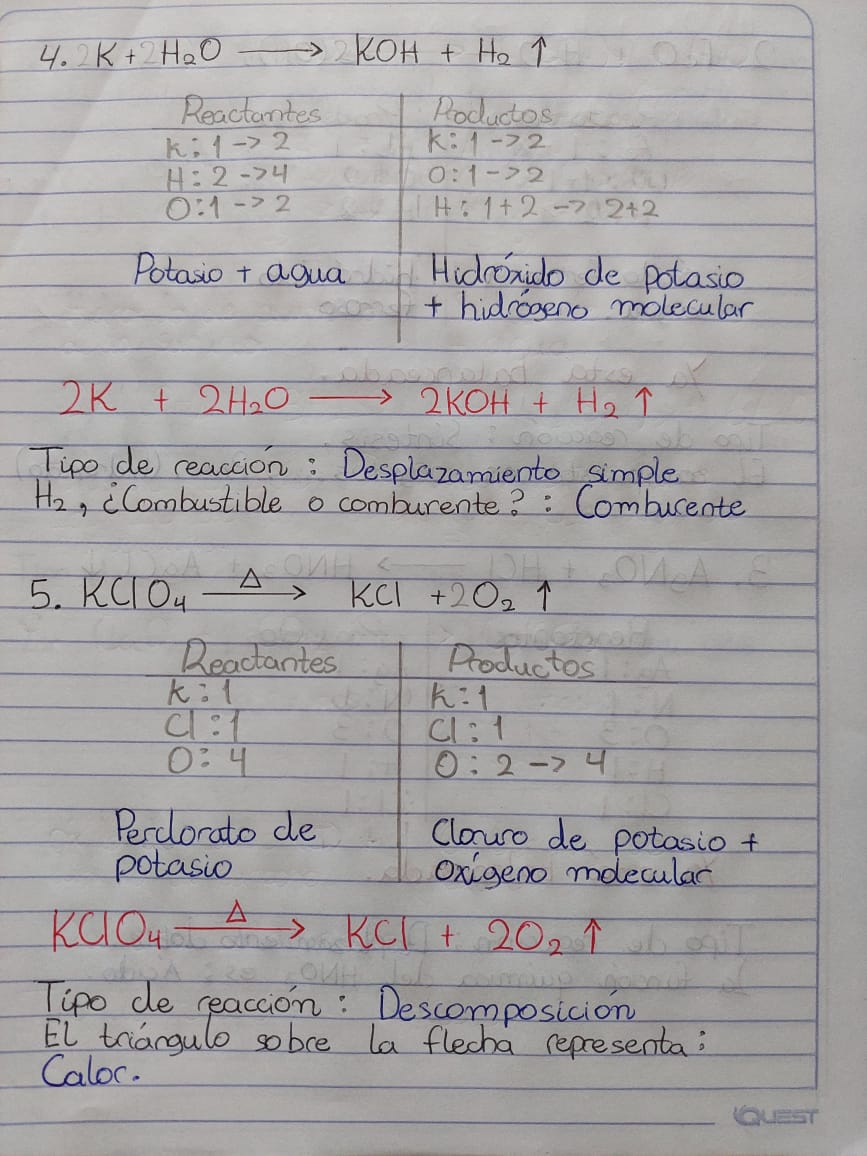 4. 2K + 2H₂O ⟶ 2KOH + H₂ ↑
Reactantes | Productos
K: 1 -> 2 | K: 1 -> 2
H: 2 -> 4 | O: 1 -> 2
O: 1 -> 2 | H: 1+2 -> 2+2
Potasio + agua | Hidróxido de potasio
+ hidrógeno molecular
2K + 2H₂O ⟶ 2KOH + H₂ ↑
Tipo de reacción : Desplazamiento simple
H₂, ¿Combustible o comburente? : Comburente
5. KClO₄ —Δ→ KCl + 2O₂ ↑
Reactantes | Productos
K: 1 | K: 1
Cl: 1 | Cl: 1
O: 4 | O: 2 -> 4
Perclorato de | Cloruro de potasio +
potasio | oxígeno molecular
KClO₄ —Δ→ KCl + 2O₂ ↑
Tipo de reacción : Descomposición
El triángulo sobre la flecha representa :
Calor.
QUEST